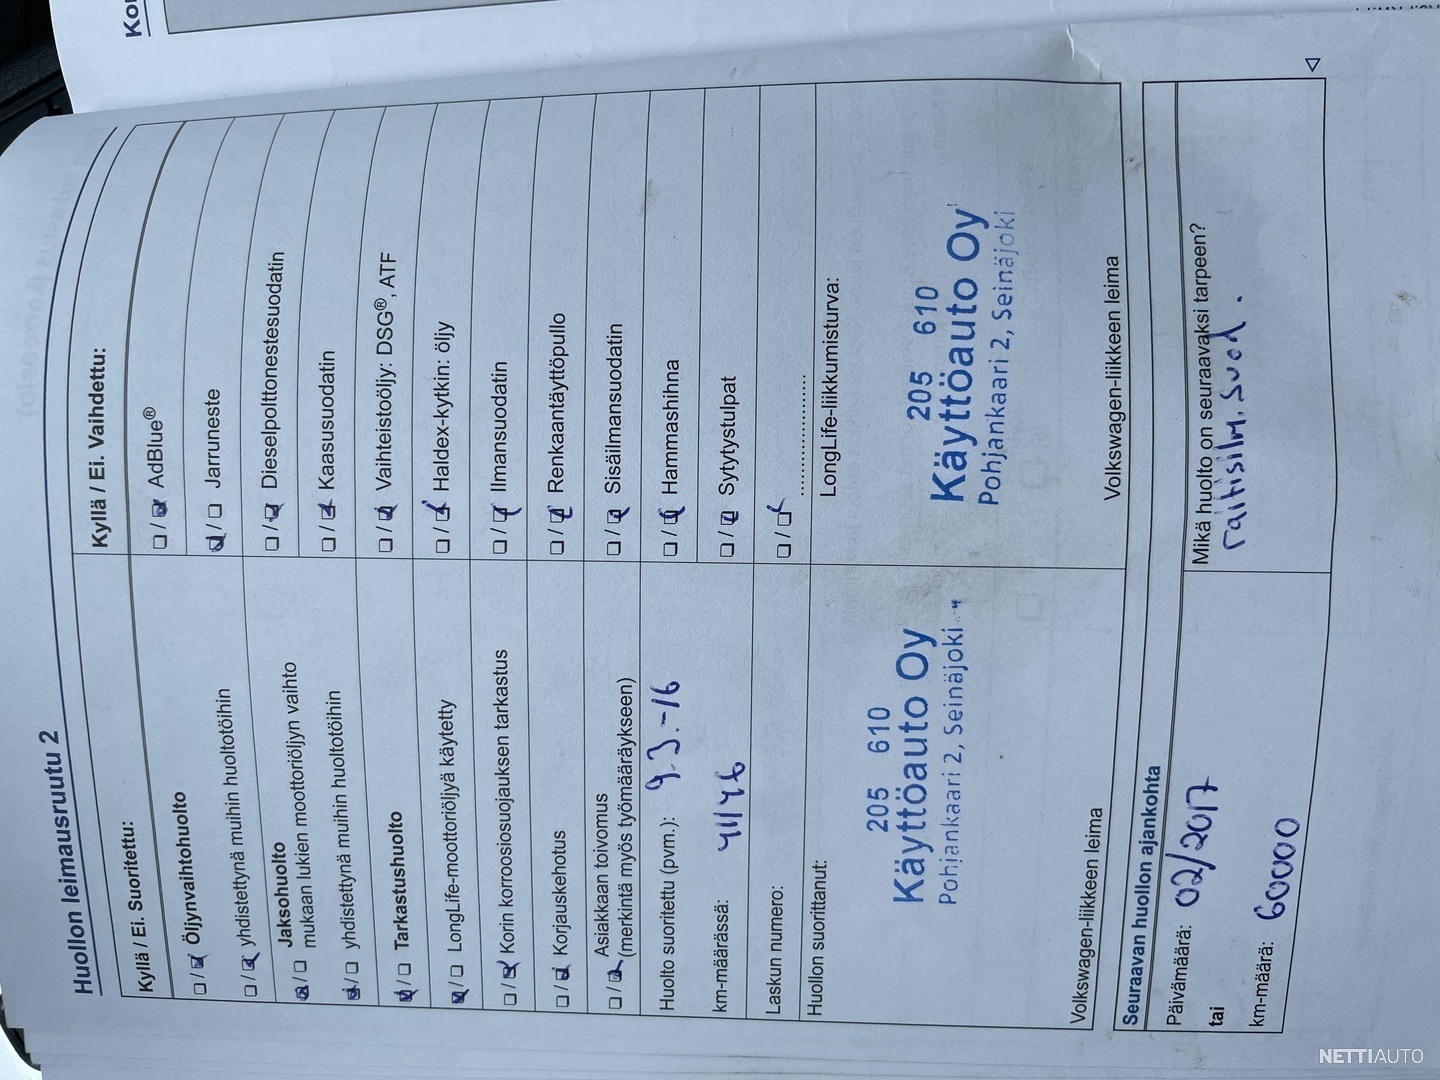 Huollon leimausruutu 2
Kyllä / Ei. Suoritettu:
/ Öljynvaihtohuolto
/ yhdistettynä muihin huoltotöihin
/ Jaksohuolto
mukaan lukien moottoriöljyn vaihto
/ yhdistettynä muihin huoltotöihin
/ Tarkastushuolto
/ LongLife-moottoriöljyä käytetty
/ Korin korroosiosuojauksen tarkastus
/ Korjauskehotus
/ Asiakkaan toivomus
(merkintä myös työmääräykseen)
Huolto suoritettu (pvm.): 9.3.-16
km-määrässä: 41146
Laskun numero:
Huollon suorittanut:
205 610
Käyttöauto Oy
Pohjankaari 2, Seinäjoki
Volkswagen-liikkeen leima
Kyllä / Ei. Vaihdettu:
/ AdBlue®
/ Jarruneste
/ Dieselpolttonestesuodatin
/ Kaasusuodatin
/ Vaihteistoöljy: DSG®, ATF
/ Haldex-kytkin: öljy
/ Ilmansuodatin
/ Renkaantäyttöpullo
/ Sisäilmansuodatin
/ Hammashihna
/ Sytytystulpat
/ ......................
LongLife-liikkumisturva:
205 610
Käyttöauto Oy
Pohjankaari 2, Seinäjoki
Volkswagen-liikkeen leima
Seuraavan huollon ajankohta
Päivämäärä: 02/2017
tai
km-määrä: 60000
Mikä huolto on seuraavaksi tarpeen?
raitisilm. suod.
NETTIAUTO